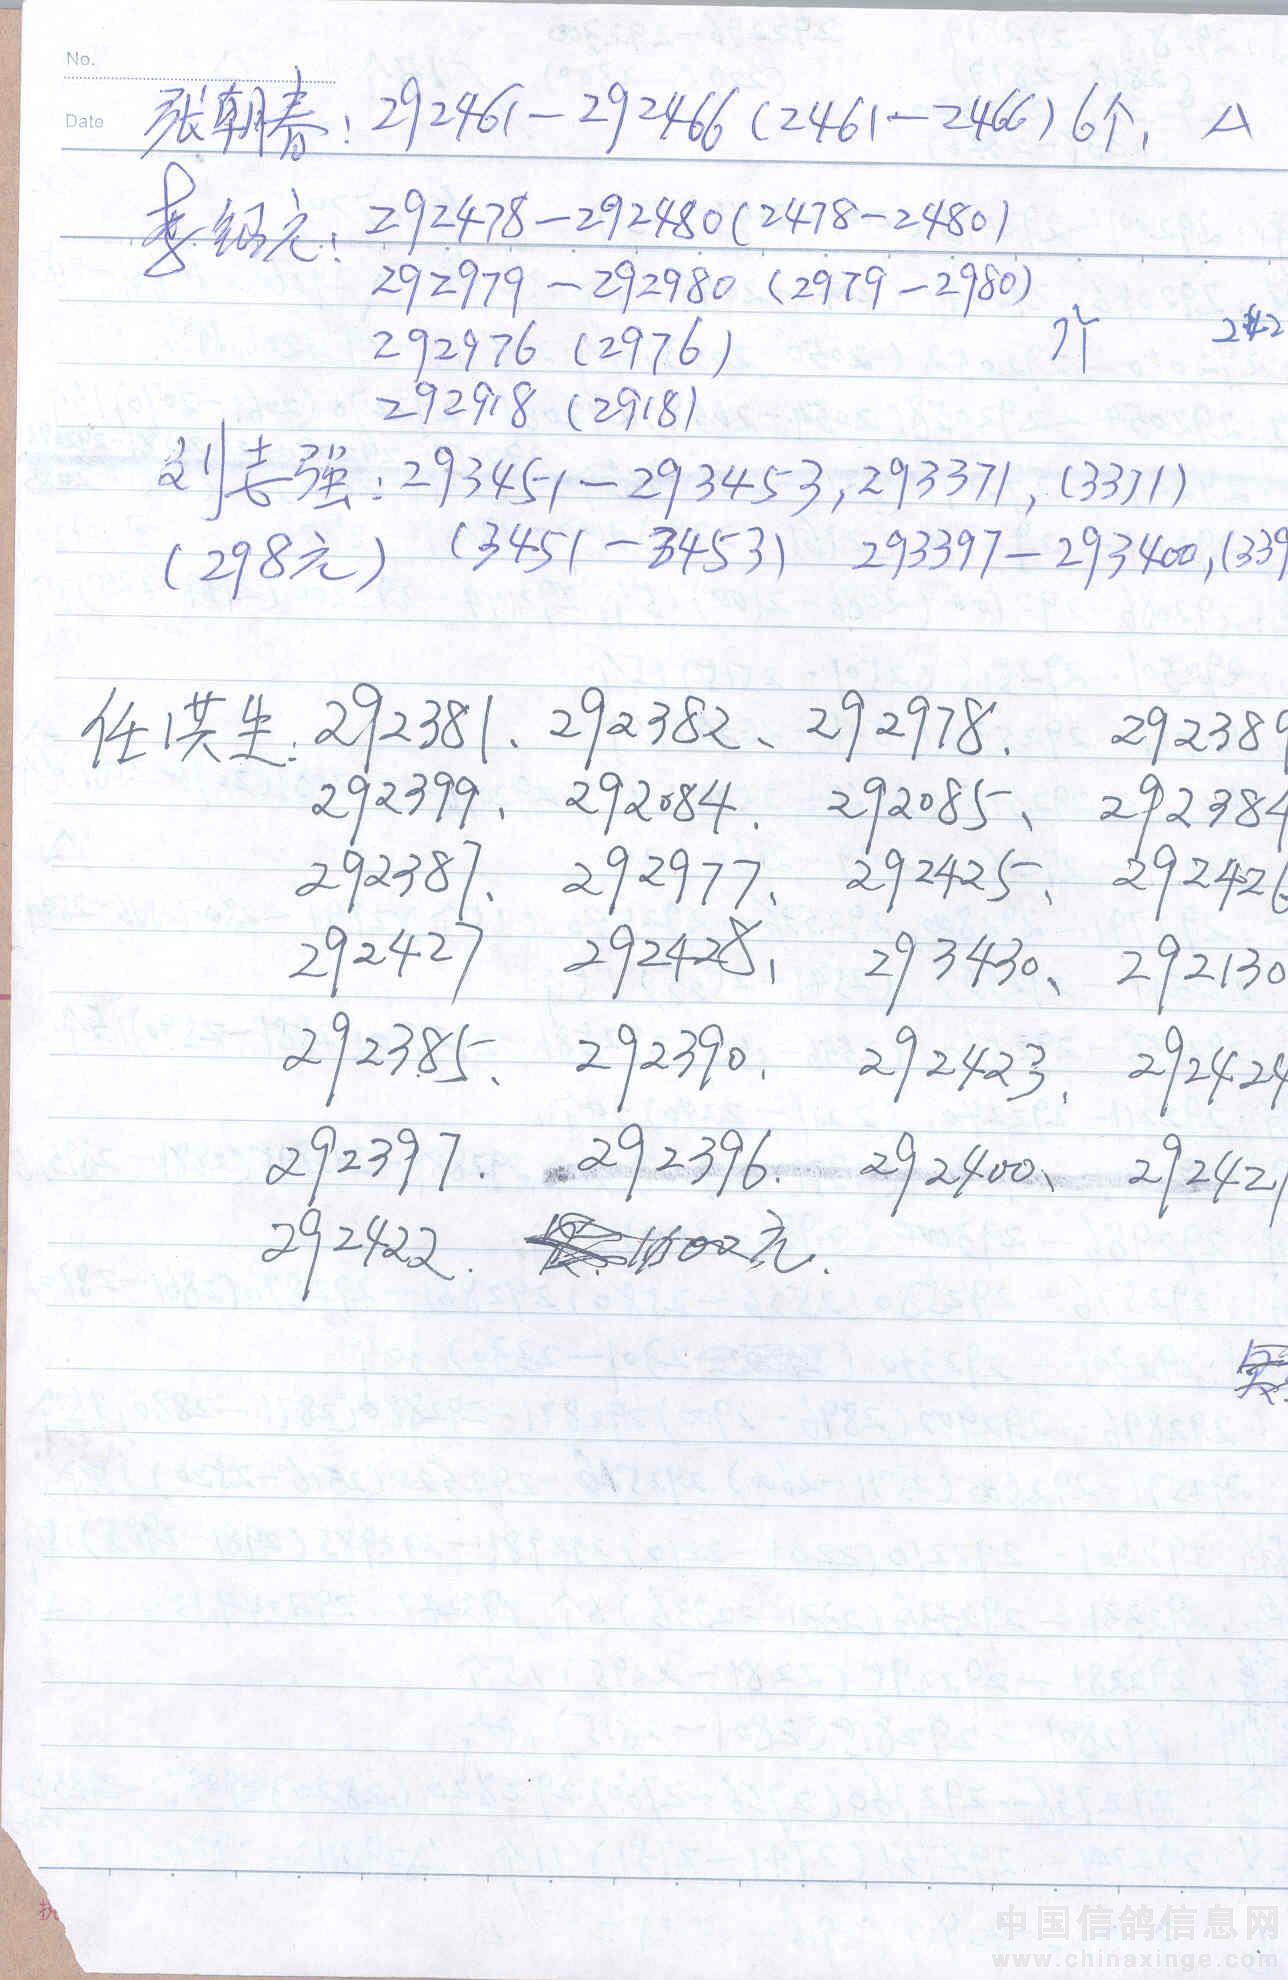 No.
Date
张朝春: 292461-292466 (2461-2466) 6个, A
李绍元: 292478-292480 (2478-2480)
292979-292980 (2979-2980)
292976 (2976) 个
292918 (2918)
刘志强: 293451-293453, 293371, (3371)
(298元) (3451-3453) 293397-293400, (339
任洪生: 292381、292382、292978. 292389
292399、292084. 292085、292384
292387、292977、292425、292426
292427 292428, 293430、292130
292385、292390. 292423. 292424
292397. 292396. 292400、292421
292422. 元.
中国信鸽信息网
www.chinaxinge.com